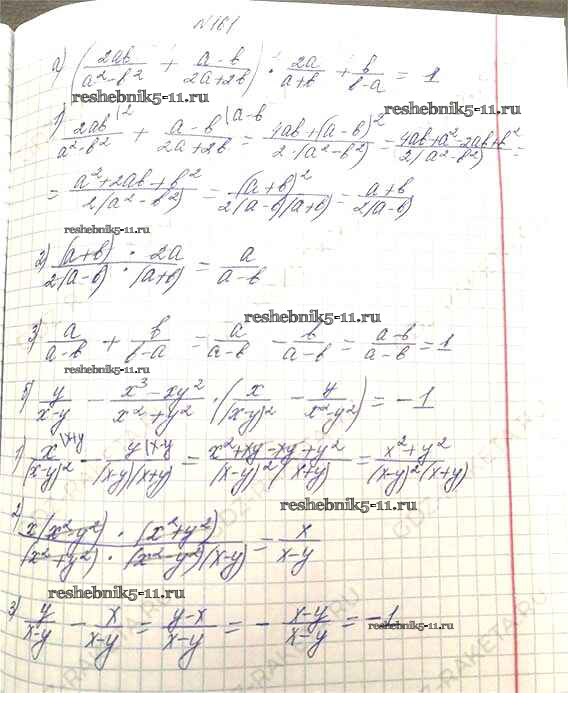 №161
а) (2ab/(a²-b²) + (a-b)/(2a+2b)) · 2a/(a+b) + b/(b-a) = 1
reshebnik5-11.ru reshebnik5-11.ru
1) 2ab|2/(a²-b²) + (a-b)|a-b/(2a+2b) = (4ab+(a-b)²)/(2·(a²-b²)) = (4ab+a²-2ab+b²)/(2(a²-b²)) =
= (a²+2ab+b²)/(2(a²-b²)) = (a+b)²/(2(a-b)(a+b)) = (a+b)/(2(a-b))
reshebnik5-11.ru
2) ((a+b) · 2a)/(2(a-b) · (a+b)) = a/(a-b)
reshebnik5-11.ru
3) a/(a-b) + b/(b-a) = a/(a-b) - b/(a-b) = (a-b)/(a-b) = 1
reshebnik5-11.ru
б) y/(x-y) - (x³-xy²)/(x²+y²) · (x/(x-y)² - y/(x²-y²)) = -1
1) x|x+y/(x-y)² - y|x-y/((x-y)(x+y)) = (x²+xy-xy+y²)/((x-y)²(x+y)) = (x²+y²)/((x-y)²(x+y))
reshebnik5-11.ru
2) (x(x²-y²) · (x²+y²))/((x²+y²) · (x²-y²)(x-y)) = x/(x-y)
reshebnik5-11.ru
3) y/(x-y) - x/(x-y) = (y-x)/(x-y) = - (x-y)/(x-y) = -1
reshebnik5-11.ru
reshebnik5-11.ru
GDZ-RAKETA.RU